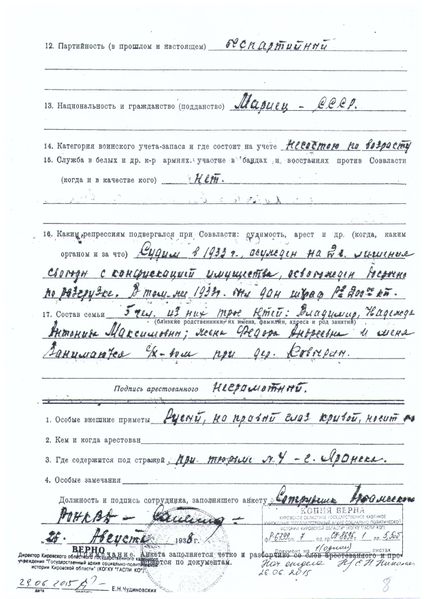 12. Партийность (в прошлом и настоящем) беспартийный
13. Национальность и гражданство (подданство) Мариец – СССР.
14. Категория воинского учета-запаса и где состоит на учете несостою по возрасту
15. Служба в белых и др. к-р армиях, участие в бандах и восстаниях против Соввласти
(когда и в качестве кого) нет.
16. Каким репрессиям подвергался при Соввласти: судимость, арест и др. (когда, каким
органом и за что) Судим в 1933 г. осужден на лишения
свободы с конфискацией имущества, освобожден досрочно
по разгрузке. В том-же 1933г. был дан штраф
17. Состав семьи 5 чел. из них трое детей: Владимир, Надежда
(близкие родственники их имена, фамилии, адреса и род занятий)
Антонина Максимовы; жена Федора Андреевна и меня
Занимаются с/х-вом при дер.
Подпись арестованного неграмотный.
1. Особые внешние приметы Русый, на правый глаз кривой, носит
2. Кем и когда арестован
3. Где содержится под стражей, при тюрьме №4 – г. Яранска.
4. Особые замечания
Должность и подпись сотрудника, заполнявшего анкету Сотрудник
26 Августа 1938 г.
Примечание. Анкета заполняется четко и разборчиво со слов арестованного и про-
веряется по документам.
ВЕРНО
Директор Кировского областного государственного
учреждения "Государственный архив социально-политической
истории Кировской области" (КОГКУ "ГАСПИ КО")
28.06.2015 Е.Н.Чудиновских
КОПИЯ ВЕРНА
Нач. отдела
26.06.2015
8